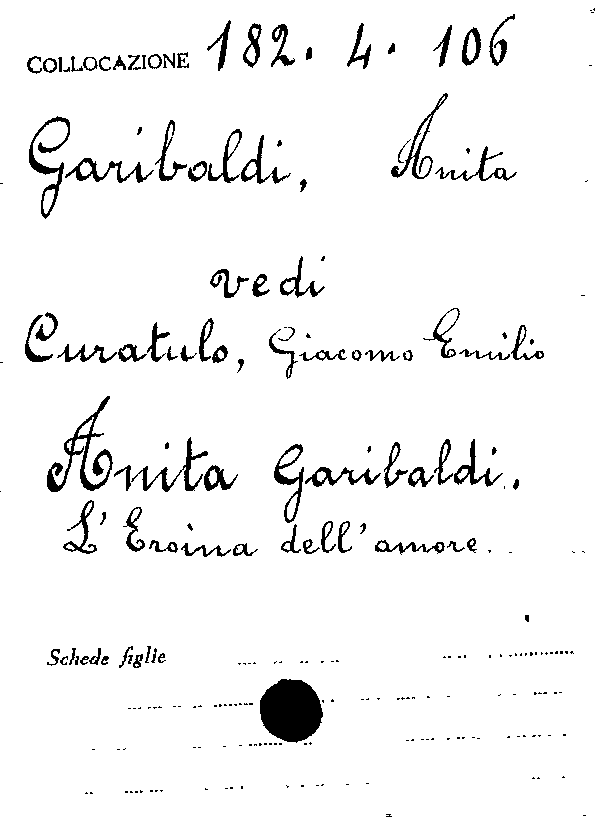 COLLOCAZIONE 182. 4. 106
Garibaldi, Anita
vedi
Curatulo, Giacomo Emilio
Anita Garibaldi.
L'Eroina dell'amore.
Schede figlie